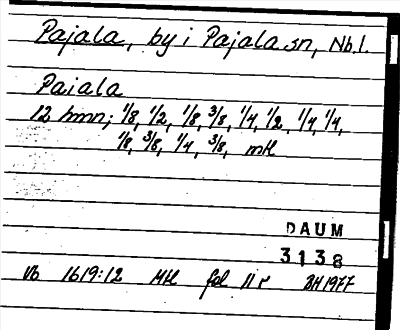 Pajala, by i Pajala sn, Nb.l.
Paiala
12 hmn; 1/8, 1/2, 1/8, 3/8, 1/4, 1/2, 1/4, 1/4,
1/8, 3/8, 1/4, 3/8, mtl
DAUM
3138
Vb 1619:12 Mtl fol 11r BH1977